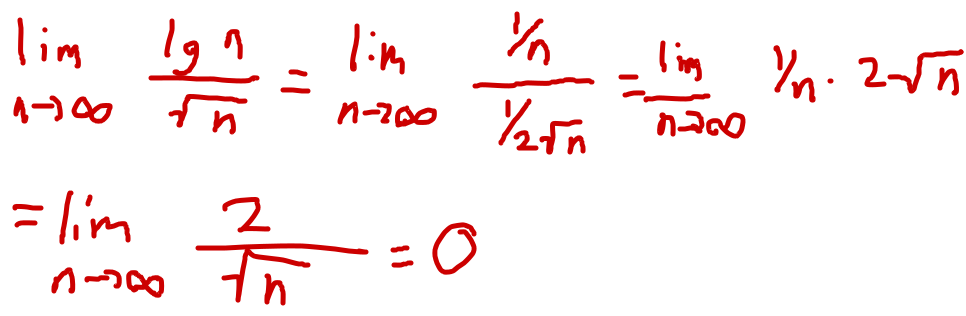 lim n→∞ lg n / √n = lim n→∞ (1/n) / (1/2√n) = lim n→∞ 1/n · 2√n
= lim n→∞ 2 / √n = 0